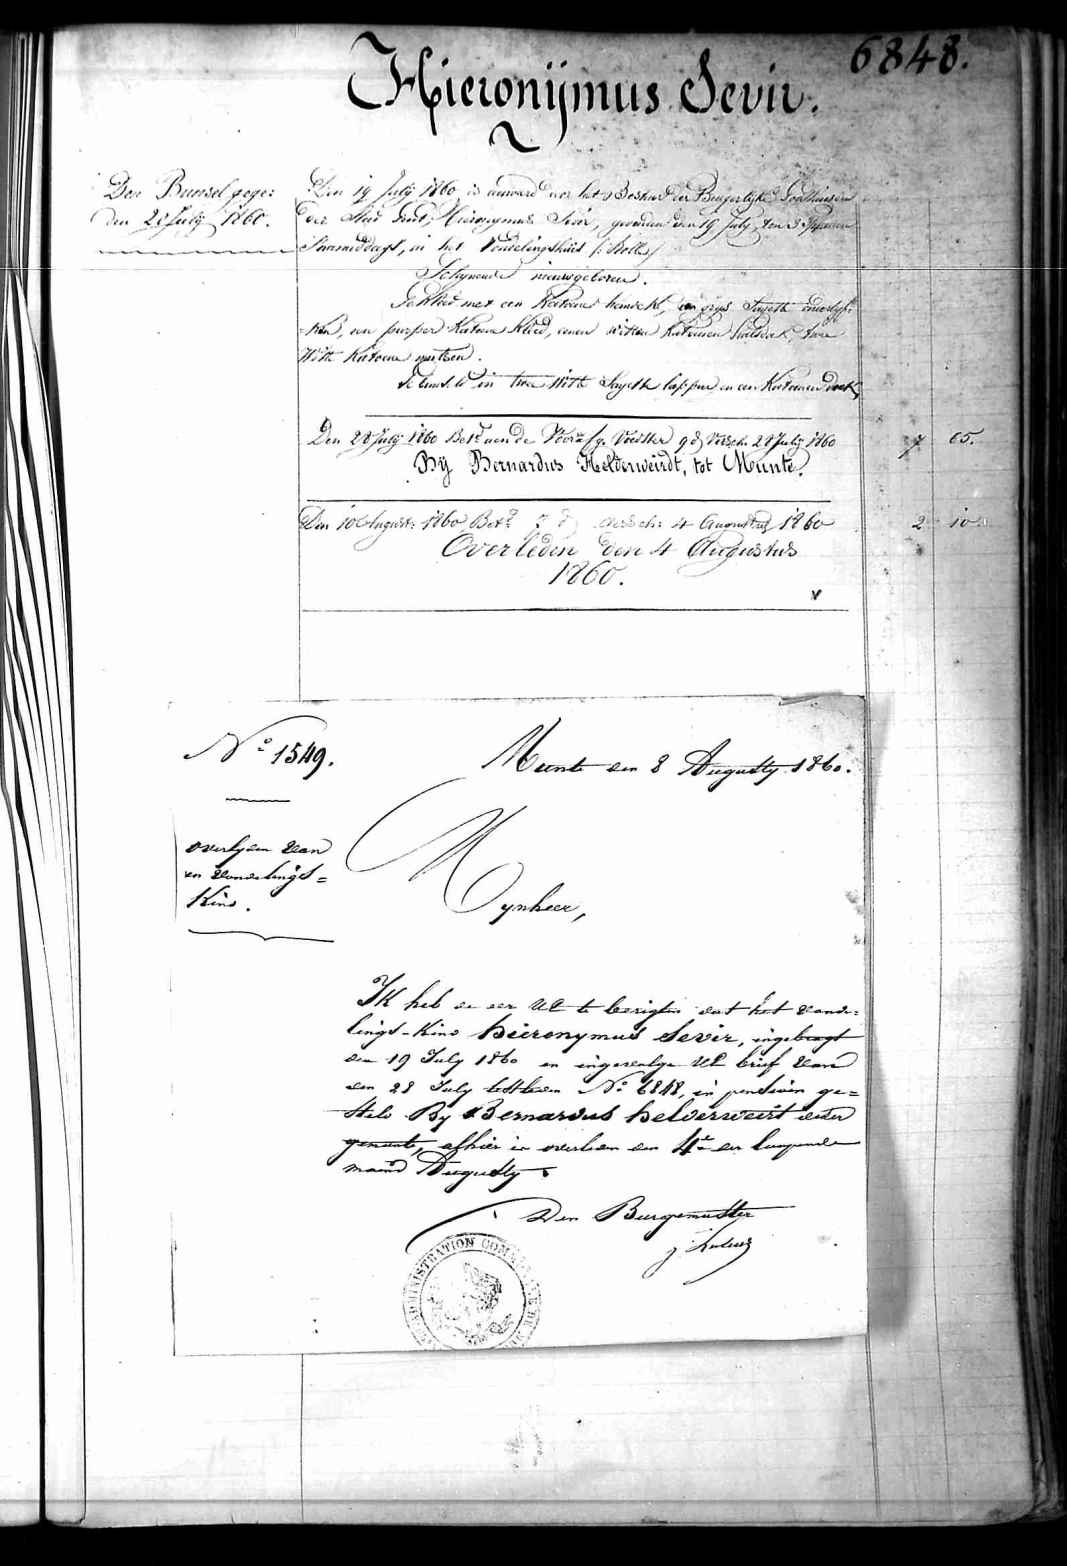 6848.
Hieronijmus Sevir.
Den Bunsel gege:
den 28 July 1860.
Den 19 July 1860 is aanvaerd door het Bestuur der Burgerlyke Godshuizen
der Stad Gent, Hieronymus Sevir, gevonden den 19 July, ten 3
Namiddags, in het Vondelingshuis (: Rolle :)
Schynende nieuwgeboren.
Gekleed met een Katoene hemdeken, een grys Sayette
een purper Katoene Kleed, eenen witten Katoenen halsdoek, twee
Witte Katoene mutsen.
in twee Witte Sayette lappen en een Katoenen doek,
Den 28 July 1860 Bet.d aen de Voedster Versch. 28 July 1860 7 65.
Bij Bernardus Helderweirdt, tot Munte.
Den 10 August: 1860 Bet.d versch: 4 Augustus 1860 2 10
Overleden den 4 Augustus
1860.
v
N.o 1549.
Munte den 8 Augusty 1860.
overlyden van
een vondelings=
Kind.
Mynheer,
Ik heb de eer UE te berigten dat het vonde=
lings-Kind hieronymus Sevir, ingebragt
den 19 July 1860 en ingevolge UE brief van
den 28 July lestleden N.o 6848, in pensioen ge=
steld By Bernardus helderweert dezer
gemeente, alhier is overleden den 4.e der loopende
maend Augusty.
Den Burgemeester
ADMINISTRATION COMMUNALE DE